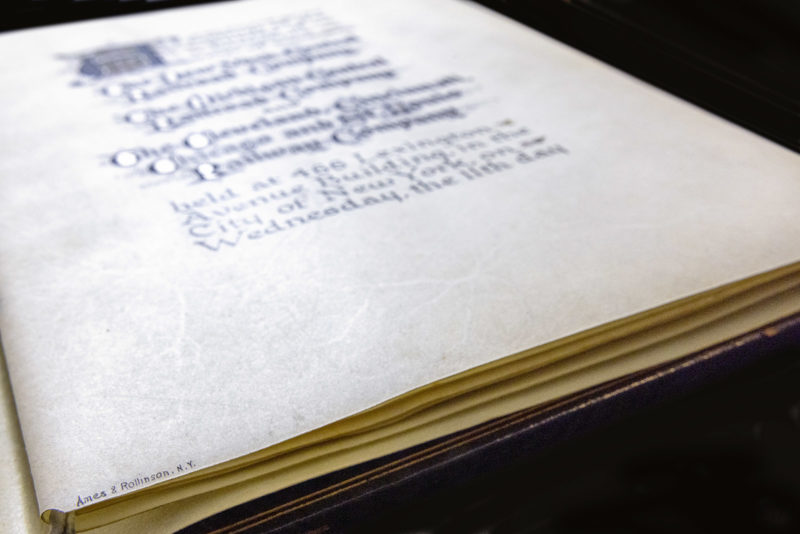 The
Railroad Company
The Michigan Central
Railroad Company
The Cleveland, Cincinnati,
Chicago and St. Louis
Railway Company
held at 466 Lexington
Avenue Building in the
City of New York, on
Wednesday, the 11th day
Ames & Rollinson, N.Y.